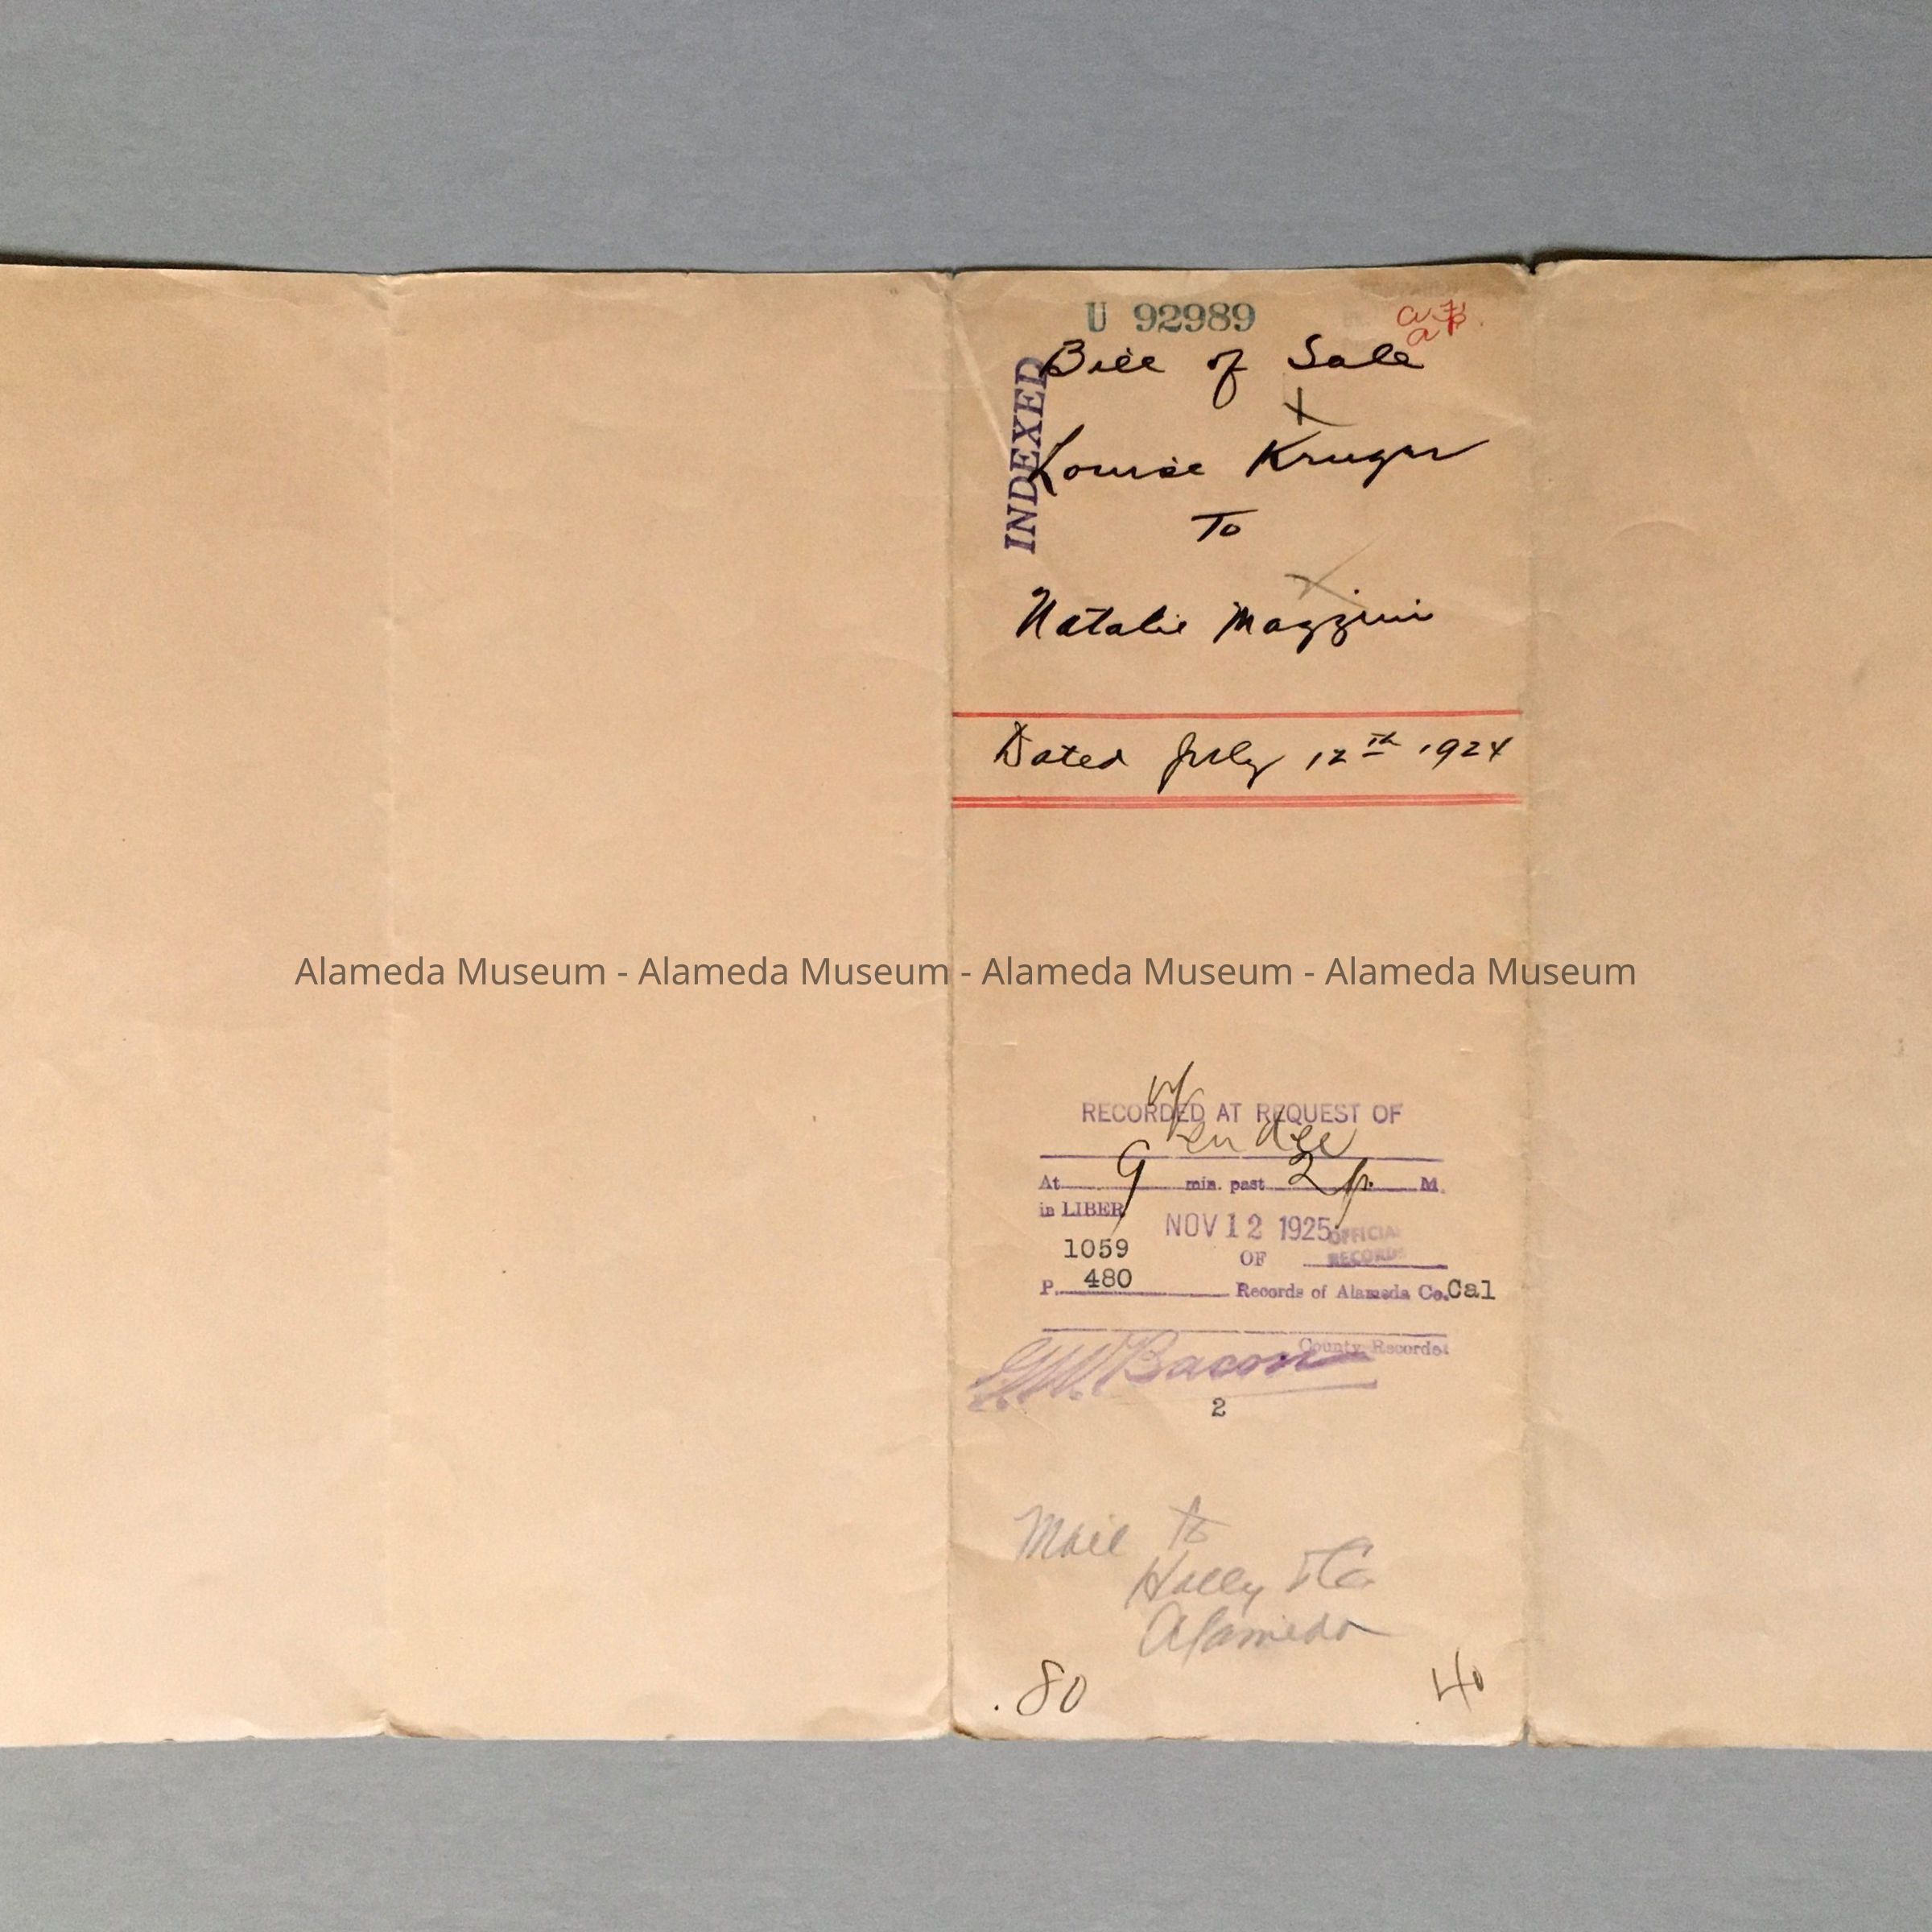 U 92989
a.F.B.
Bill of Sale
INDEXED
Louise Kruger
To
Natalie Mazzini
Dated July 12th 1924
Alameda Museum - Alameda Museum - Alameda Museum - Alameda Museum
RECORDED AT REQUEST OF
Vendee
At 9 min. past 2 p. M.
in LIBER
NOV 12 1925
OFFICIAL
1059 OF RECORDS
P. 480 Records of Alameda Co. Cal
County Recorder
G.W. Bacon
2
Mail to
Hally & Co.
Alameda
.80
40